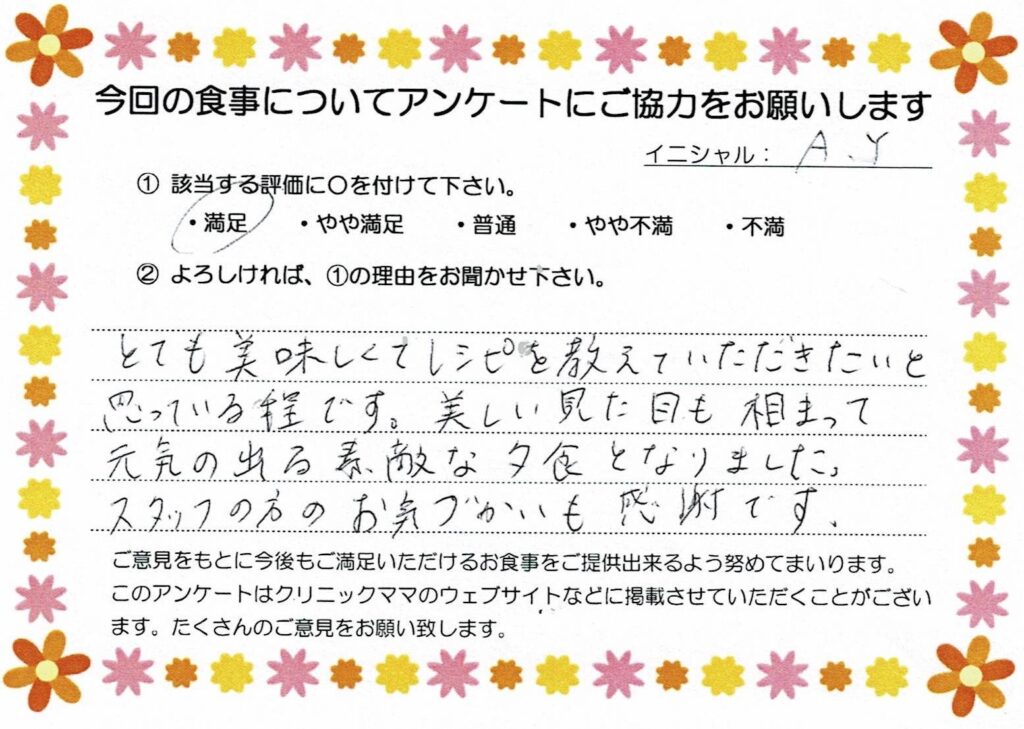 今回の食事についてアンケートにご協力をお願いします
イニシャル： A.Y
① 該当する評価に〇を付けて下さい。
・満足 ・やや満足 ・普通 ・やや不満 ・不満
② よろしければ、①の理由をお聞かせ下さい。
とても美味しくてレシピを教えていただきたいと
思っている程です。美しい見た目も相まって
元気の出る素敵な夕食となりました。
スタッフの方のお気づかいも感謝です。
ご意見をもとに今後もご満足いただけるお食事をご提供出来るよう努めてまいります。
このアンケートはクリニックママのウェブサイトなどに掲載させていただくことがござい
ます。たくさんのご意見をお願い致します。